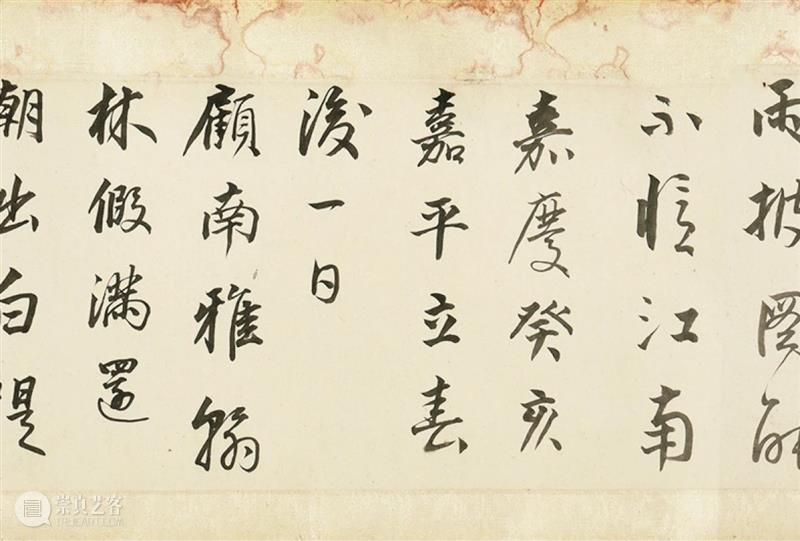 雨披圖能
不憶江南
嘉慶癸亥
嘉平立春
後一日
顧南雅翰
林假滿還
朝出白堤
崇真艺客
TRUEART.COM